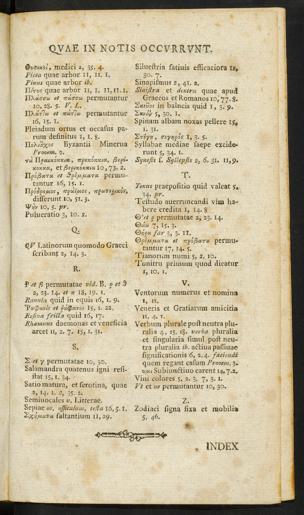 QVAE IN NOTIS OCCVRRVNT.
Φυσικοί, medici 2, 35. 4.
Picea quae arbor 11, 11. 1.
Pinus quae arbor ib.
Πίτυς quae arbor 11, 1, 11, 11. 1.
permutantur
10, 28. 5. V. L.
permutantur
16, 15. 1.
Pleiadum ortus et occasus pa-
rum definitus 1, 1. 8.
Byzantii Minerva
Prooem. 7.
τὰ Πραικόκκια, πρεκόκκια, βερί-
κοκκα, et βερύκοκκα 10, 73. 2.
Πρόβατα et θρέμματα permu-
tantur 16, 15. 1.
differunt 10, 51. 3.
10, 5. pr.
Psilueratio 3, 10. 2.
Q.
QV Latinorum quomodo Graeci
scribant 2, 14. 3.
R.
P et β permutatae vid. B. ρ et θ
2, 23. 14. et 18, 19. 1.
Ranula quid in equis 16, 1. 9.
15, 1. 22.
quid 16, 17.
Rhamnus daemonas et veneficia
arcet 11, 2. 7. 15, 1. 31.
S.
Σ et γ permutatae 10, 30.
Salamandra quatenus igni resi-
stat 15, 1. 34.
Satio matura, et serotina, quae
2, 14. 1. 2, 35. 2.
Semivocales v. Litterae.
Sepiae os, officulum, testa 16, 5. 1.
Σχήματα saltantium 11, 29.
Silvestria sativis efficaciora 12,
30. 7.
Sinapismus 2, 41. 2.
Sinistra et dextra quae apud
Graecos et Romanos 10, 77. 8.
in balneis quid 1, 3. 9.
5, 30. 1.
Spinam albam noxas pellere 15,
1. 31.
1, 3. 5.
Syllabae mediae saepe excide-
runt 5, 24. 1.
Synesis f. Syllepsis 2, 6. 31. 11, 9.
T.
Tenus praepositio quid valeat 5,
24. pr.
Testudo nuerruncandi vim ha-
bere credita 1, 14. 8
Θ et ρ permutatae 2, 23. 14.
7, 15. 3.
3, 3. 11.
Θρέμματα et πρόβατα permu-
tantur 17, 14. 5.
5, 2. 10.
Tonitru primum quod dicatur
1, 10. 1.
V.
Ventorum numerus et nomina
1, 11.
Veneris et Gratiarum amicitia
11, 4. 1.
Verbum plurale post neutra plu-
ralia 4, 25. 18. verba pluralia
et singularia simul post neu-
tra pluralia ib. activa passivae
significationis 6, 2. 4. faciendi
quem regant casum Prooem. 5.
καν Subiunctiuo carent 14, 7. 2.
Vini colores 5, 2. 3, 7, 3. 1.
Vt et ως permutantur 10, 30.
Z.
Zodiaci signa fixa et mobilia
5, 46.
INDEX